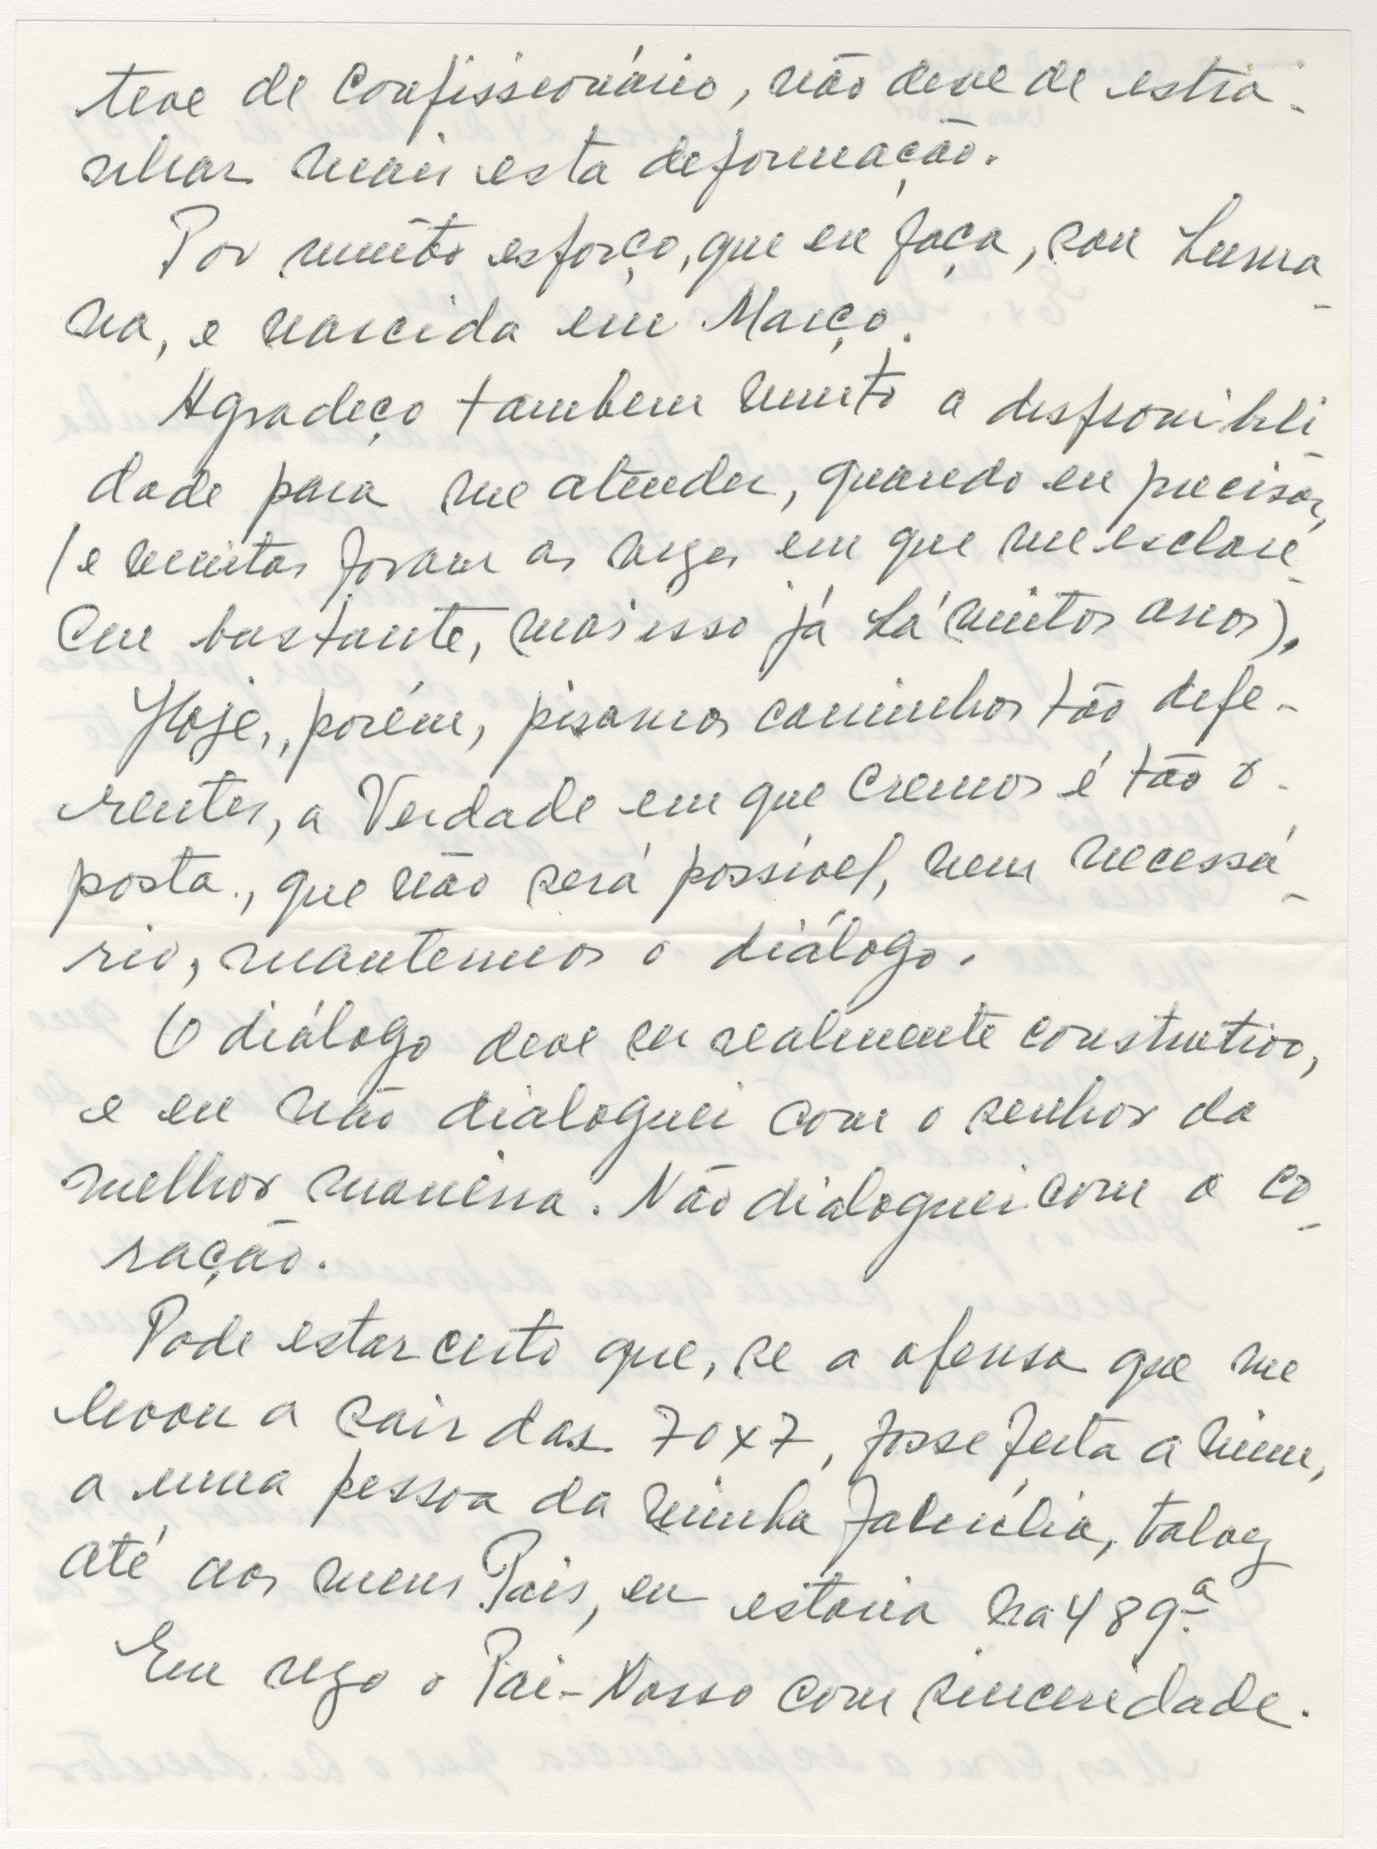 teve de confissionário, não deve de estra-
nhar mais esta deformação.
Por muito esforço, que eu faça, sou huma-
na, e nascida em Março.
Agradeço tambem muito a disponibili-
dade para me atender, quando eu precisar,
(e muitas foram as vezes em que me esclare-
ceu bastante, mas isso já há muitos anos).
Hoje, porém, pisamos caminhos tão dife-
rentes, a Verdade em que cremos é tão o-
posta, que não será possível, nem necessá-
rio, mantermos o diálogo.
O diálogo deve ser realmente construtivo,
e eu não dialoguei com o senhor da
melhor maneira. Não dialoguei com o co-
ração.
Pode estar certo que, se a ofensa que me
levou a sair das 70x7, fosse feita a mim,
a uma pessoa da minha família, talvez
até aos meus Pais, eu estaria na 489ª.
Eu rezo o Pai-Nosso com sinceridade.